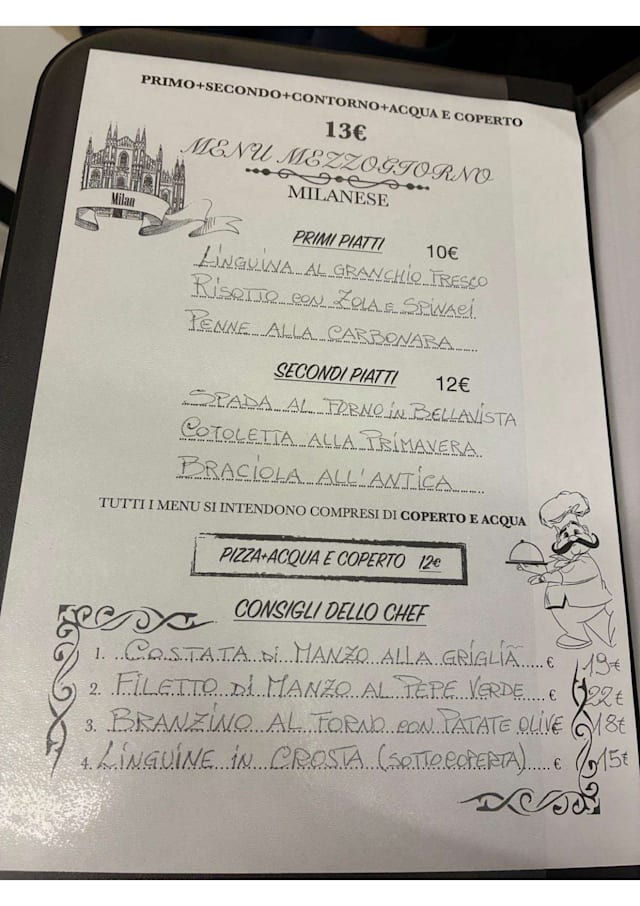 PRIMO+SECONDO+CONTORNO+ACQUA E COPERTO
13€
MENU MEZZOGIORNO
MILANESE
Milan
PRIMI PIATTI 10€
LINGUINA AL GRANCHIO FRESCO
RISOTTO CON ZOLA E SPINACI
PENNE ALLA CARBONARA
SECONDI PIATTI 12€
SPADA AL FORNO IN BELLAVISTA
COTOLETTA ALLA PRIMAVERA
BRACIOLA ALL'ANTICA
TUTTI I MENU SI INTENDONO COMPRESI DI COPERTO E ACQUA
PIZZA+ACQUA E COPERTO 12€
CONSIGLI DELLO CHEF
1. COSTATA DI MANZO ALLA GRIGLIA € 19€
2. FILETTO DI MANZO AL PEPE VERDE € 22€
3. BRANZINO AL FORNO CON PATATE OLIVE 18€
4. LINGUINE IN CROSTA (SOTTOCOPERTA) € 15€